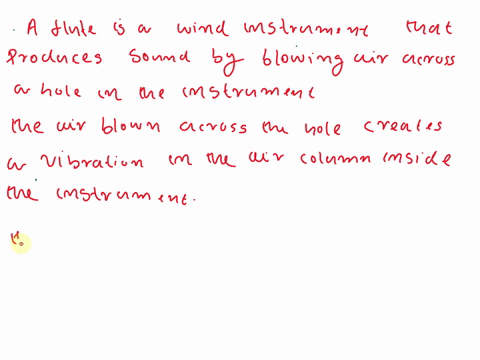 . A flute is a wind instrument that
produces sound by blowing air across
a hole in the instrument
the air blown across the hole creates
a vibration in the air column inside
the instrument.